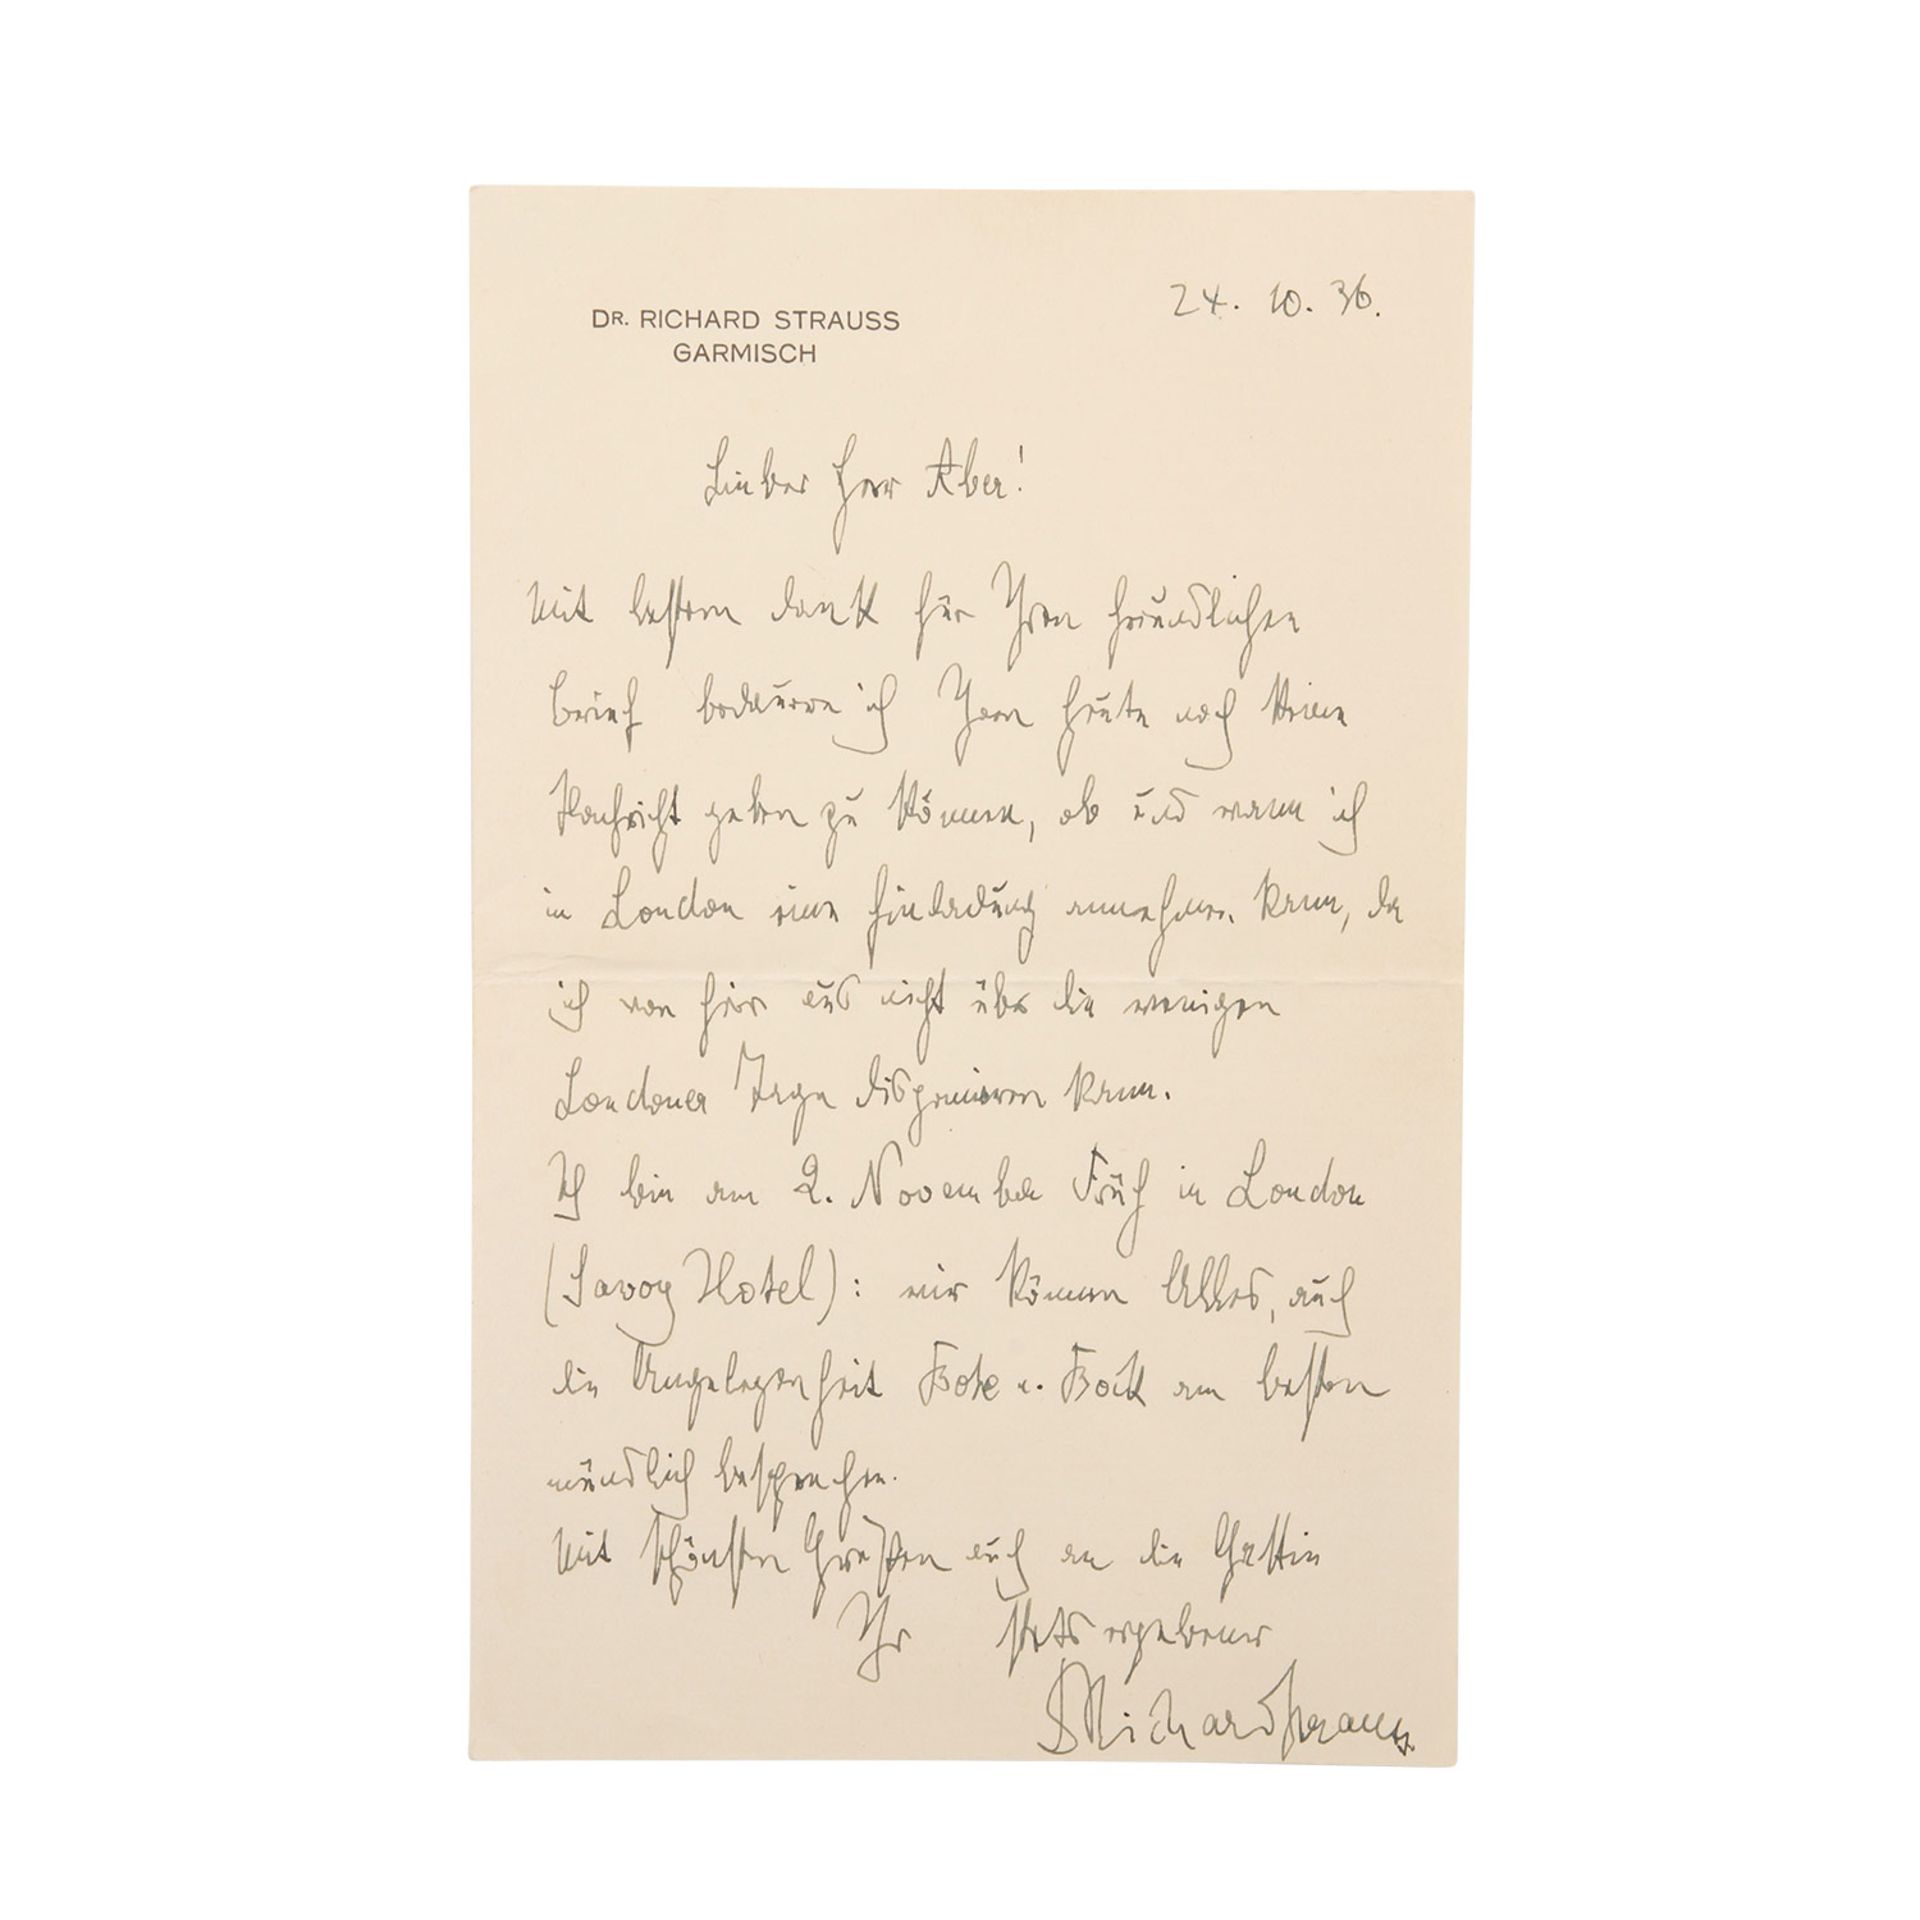 DR. RICHARD STRAUSS
GARMISCH
24. 10. 36.
Lieber Herr Aber!
Mit bestem Dank für Ihren freundlichen
Brief bedauere ich Ihnen heute noch keine
Nachricht geben zu können, ob und wann ich
in London eine Einladung annehmen kann, da
ich von hier aus nicht über die wenigen
Londoner Tage disponieren kann.
Ich bin am 2. November Früh in London
(Savoy Hotel): wir können Alles, auch
die Angelegenheit Bote u. Bock am besten
mündlich besprechen.
Mit schönsten Grüßen auch an die Gattin
Ihr stets ergebener
DrRichardStrauss